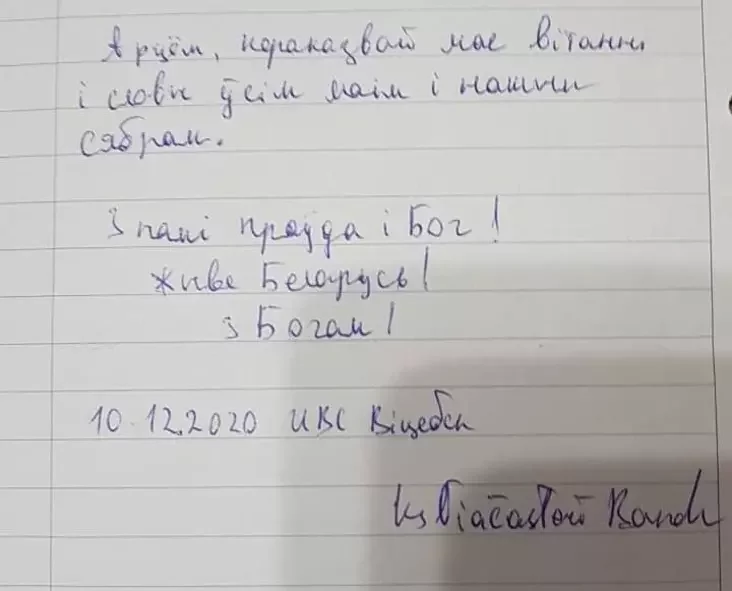 Арцём, пераказвай мае вітанні
і словы ўсім маім і нашым
сябрам.
З намі праўда і Бог!
Жыве Беларусь!
з Богам!
10.12.2020 ИВС Віцебск
ks Viačasłaŭ Barok